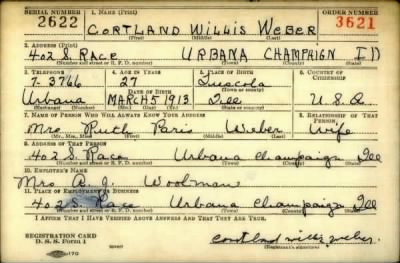 SERIAL NUMBER 1. NAME (Print) ORDER NUMBER
2622 CORTLAND WILLIS WEBER 3621
(First) (Middle) (Last)
2. ADDRESS (Print)
402 S. RACE URBANA CHAMPAIGN ILL
(Number and street or R. F. D. number) (Town) (County) (State)
3. TELEPHONE 4. AGE IN YEARS 5. PLACE OF BIRTH 6. COUNTRY OF CITIZENSHIP
7-3766 27 Tuscola
DATE OF BIRTH (Town or county)
Urbana MARCH 5 1913 Ill U.S.A.
(Exchange) (Number) (Mo.) (Day) (Yr.) (State or country)
7. NAME OF PERSON WHO WILL ALWAYS KNOW YOUR ADDRESS 8. RELATIONSHIP OF THAT PERSON
Mrs Ruth Paris Weber Wife
(Mr., Mrs., Miss) (First) (Middle) (Last)
9. ADDRESS OF THAT PERSON
402 S. Race Urbana Champaign Ill
(Number and street or R. F. D. number) (Town) (County) (State)
10. EMPLOYER'S NAME
Mrs Woolman
11. PLACE OF EMPLOYMENT OR BUSINESS
402 S. Race Urbana Champaign Ill
(Number and street or R. F. D. number) (Town) (County) (State)
I AFFIRM THAT I HAVE VERIFIED ABOVE ANSWERS AND THAT THEY ARE TRUE.
REGISTRATION CARD
D. S. S. Form 1 cortland willis weber
(Registrant's signature)